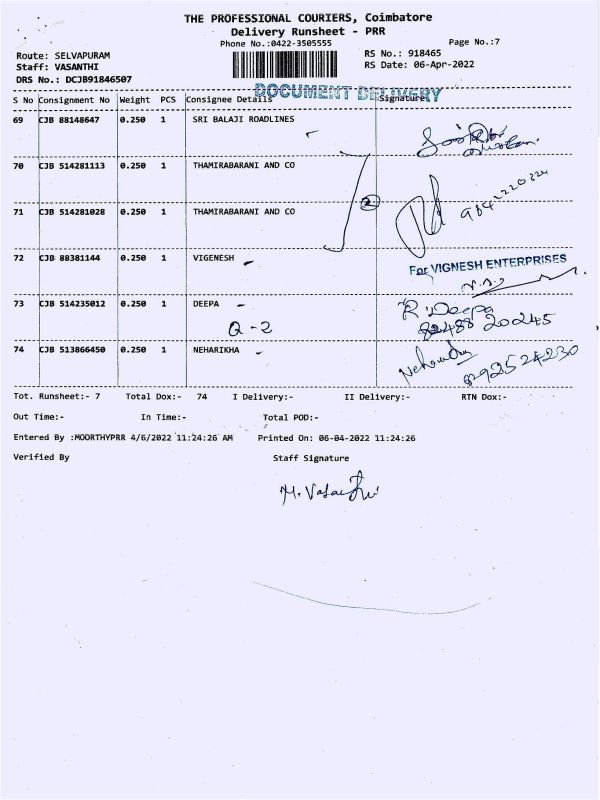 THE PROFESSIONAL COURIERS, Coimbatore
Delivery Runsheet - PRR
Phone No.:0422-3505555
Page No.:7
Route: SELVAPURAM
RS No.: 918465
Staff: VASANTHI
RS Date: 06-Apr-2022
DRS No.: DCJB91846507
DOCUMENT DELIVERY
S No Consignment No Weight PCS Consignee Details Signature
69 CJB 88148647 0.250 1 SRI BALAJI ROADLINES
70 CJB 514281113 0.250 1 THAMIRABARANI AND CO
2
71 CJB 514281028 0.250 1 THAMIRABARANI AND CO
72 CJB 88381144 0.250 1 VIGENESH -
For VIGNESH ENTERPRISES
73 CJB 514235012 0.250 1 DEEPA - R. Deepa
Q-2 82488 20245
74 CJB 513866450 0.250 1 NEHARIKHA -
Tot. Runsheet:- 7 Total Dox:- 74 I Delivery:- II Delivery:- RTN Dox:-
Out Time:- In Time:- Total POD:-
Entered By :MOORTHYPRR 4/6/2022 11:24:26 AM Printed On: 06-04-2022 11:24:26
Verified By Staff Signature